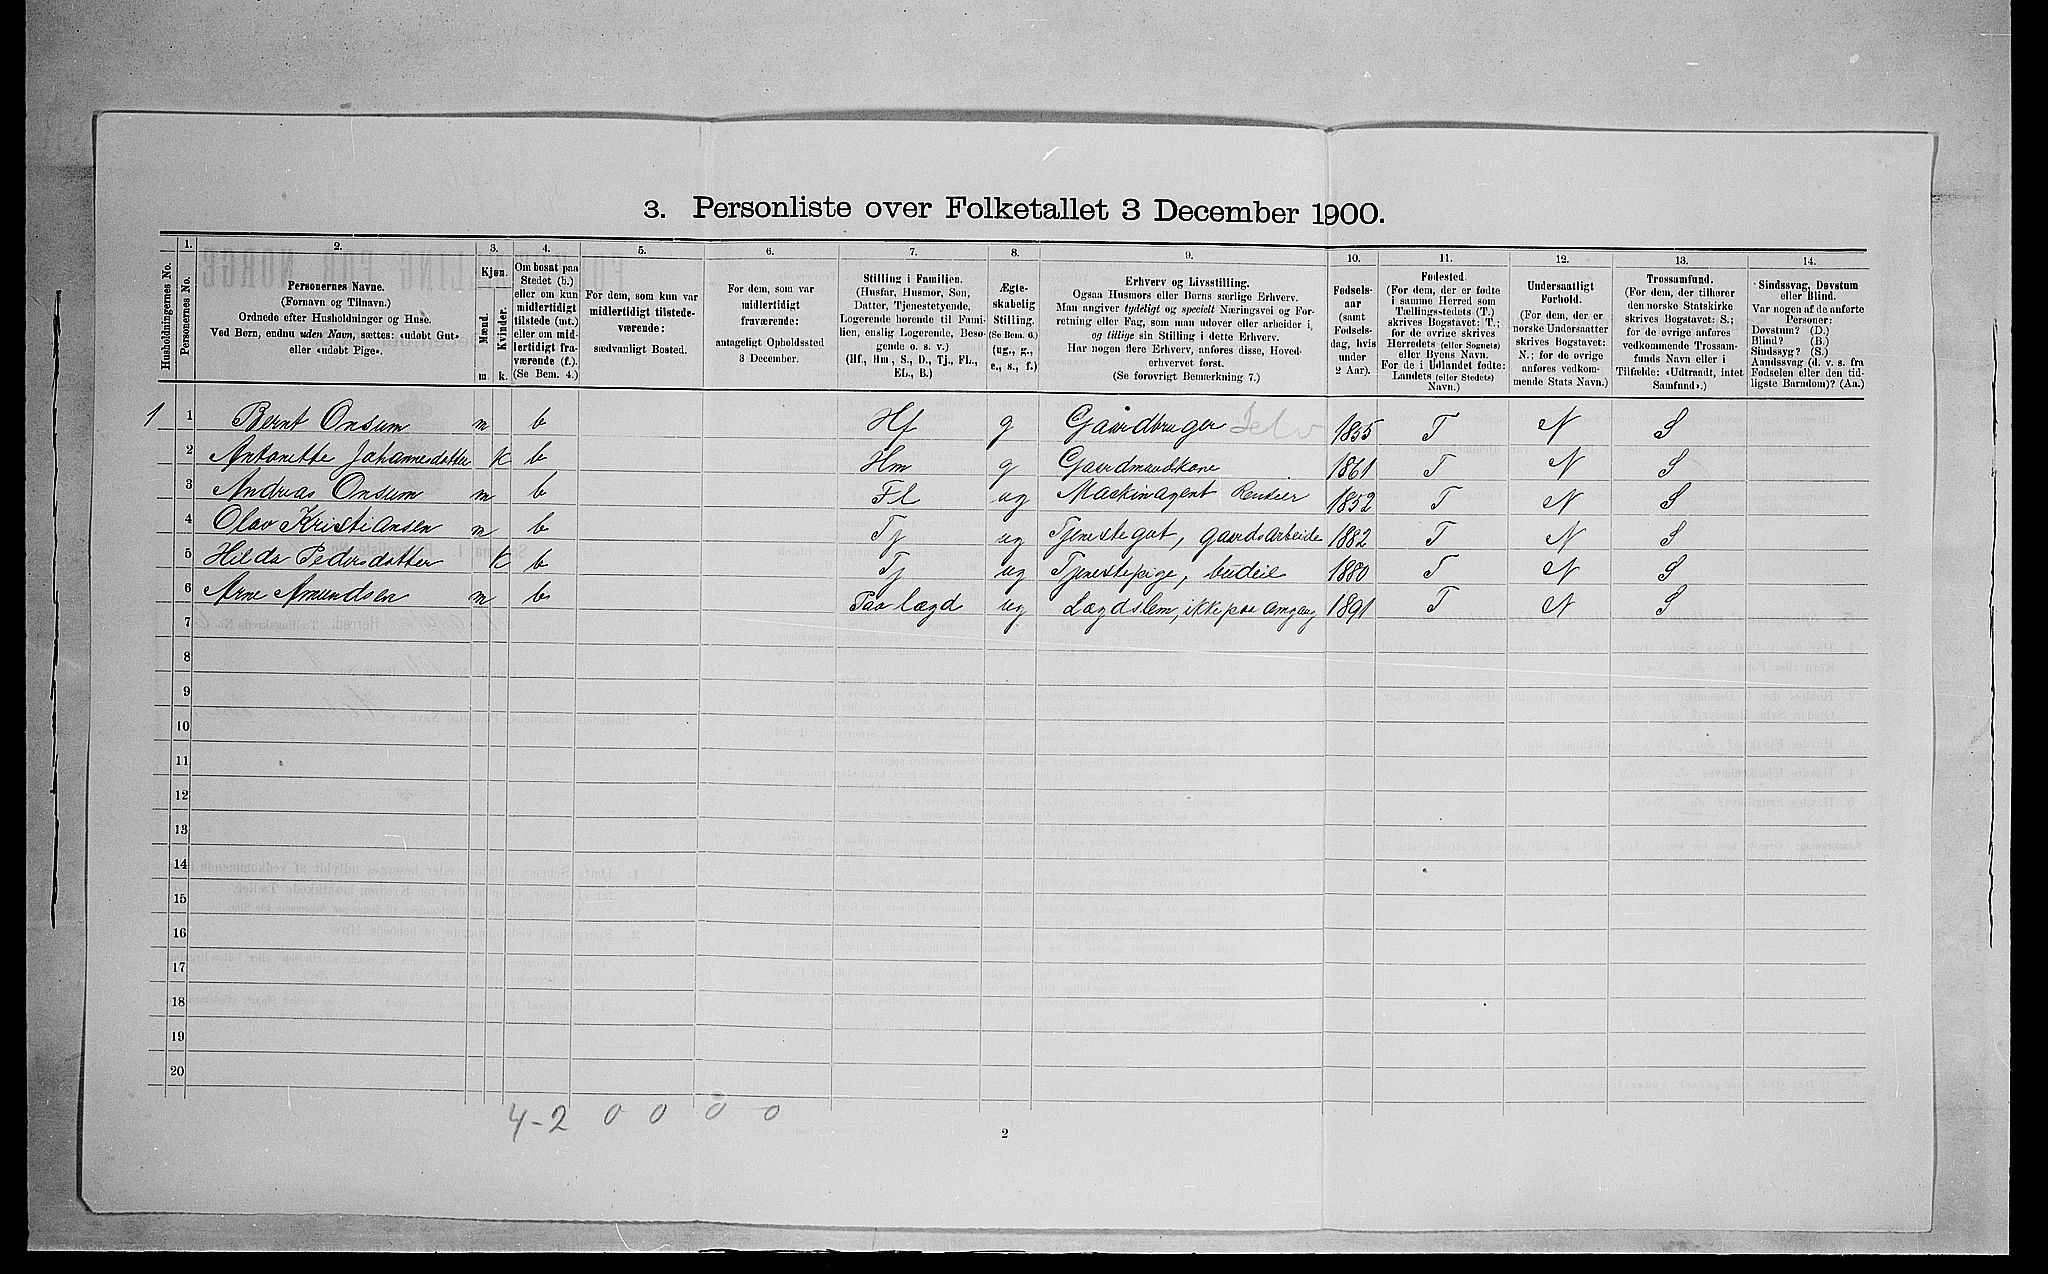 3. Personliste over Folketallet 3 December 1900.
Husholdningernes No.
1.
Personernes No.
2.
Personernes Navne.
(Fornavn og Tilnavn.)
Ordnede efter Husholdninger og Huse.
Ved Børn, endnu uden Navn, sættes: «udøbt Gut»
eller «udøbt Pige».
3.
Kjøn.
Mænd.
Kvinder.
m.
k.
4.
Om bosat paa
Stedet (b.)
eller om kun
midlertidigt
tilstede (mt.)
eller om mid-
lertidigt fra-
værende (f.).
(Se Bem. 4.)
5.
For dem, som kun var
midlertidigt tilstede-
værende:
sædvanligt Bosted.
6.
For dem, som var
midlertidigt
fraværende:
antageligt Opholdssted
3 December.
7.
Stilling i Familien.
(Husfar, Husmor, Søn,
Datter, Tjenestetyende,
Logerende hørende til Fami-
lien, enslig Logerende, Besø-
gende o. s. v.)
(Hf., Hm., S., D., Tj., FL.,
EL., B.)
8.
Ægte-
skabelig
Stilling.
(Se Bem. 6.)
(ug., g.,
e., s., f.)
9.
Erhverv og Livsstilling.
Ogsaa Husmors eller Børns særlige Erhverv.
Man angiver tydeligt og specielt Næringsvei og For-
retning eller Fag, som man udøver eller arbeider i,
og tillige sin Stilling i dette Erhverv.
Har nogen flere Erhverv, anføres disse, Hoved-
erhvervet først.
(Se forøvrigt Bemærkning 7.)
10.
Fødsels-
aar
(samt
Fødsels-
dag, hvis
under
2 Aar).
11.
Fødested.
(For dem, der er fødte
i samme Herred som
Tællingsstedets (T.)
skrives Bogstavet: T.;
for de øvrige skrives
Herredets (eller Sognets)
eller Byens Navn.
For de i Udlandet fødte:
Landets (eller Stedets)
Navn.)
12.
Undersaatligt
Forhold.
(For dem, der er
norske Undersaatter
skrives Bogstavet:
N.; for de øvrige
anføres vedkom-
mende Stats Navn.)
13.
Trossamfund.
(For dem, der tilhører
den norske Statskirke
skrives Bogstavet: S.;
for de øvrige anføres
vedkommende Trossam-
funds Navn eller i
Tilfælde: «Udtraadt, intet
Samfund».)
14.
Sindssvag, Døvstum
eller Blind.
Var nogen af de anførte
Personer:
Døvstum? (D.)
Blind? (B.)
Sindssyg? (S.)
Aandssvag (d. v. s. fra
Fødselen eller den tid-
ligste Barndom)? (Aa.)
1 1 Bernt Onsum m b Hf g Gaardbruger Selv 1835 T N S
2 Antonette Johannesdatter K b Hm g Gaardmandkone 1861 T N S
3 Andreas Onsum m b Fl ug Maskinagent Rentier 1852 T N S
4 Olav Kristiansen m b Tj ug Tjenestegut, gaardsarbeide 1882 T N S
5 Hilda Pedersdatter K b Tj ug Tjenestepige, budeie 1880 T N S
6 Arne Amundsen m b Paa lægd ug Lægdslem, ikke paa omgang 1891 T N S
7
8
9
10
11
12
13
14
15
16
17
18
19
20
4-2 0 0 0 0
2